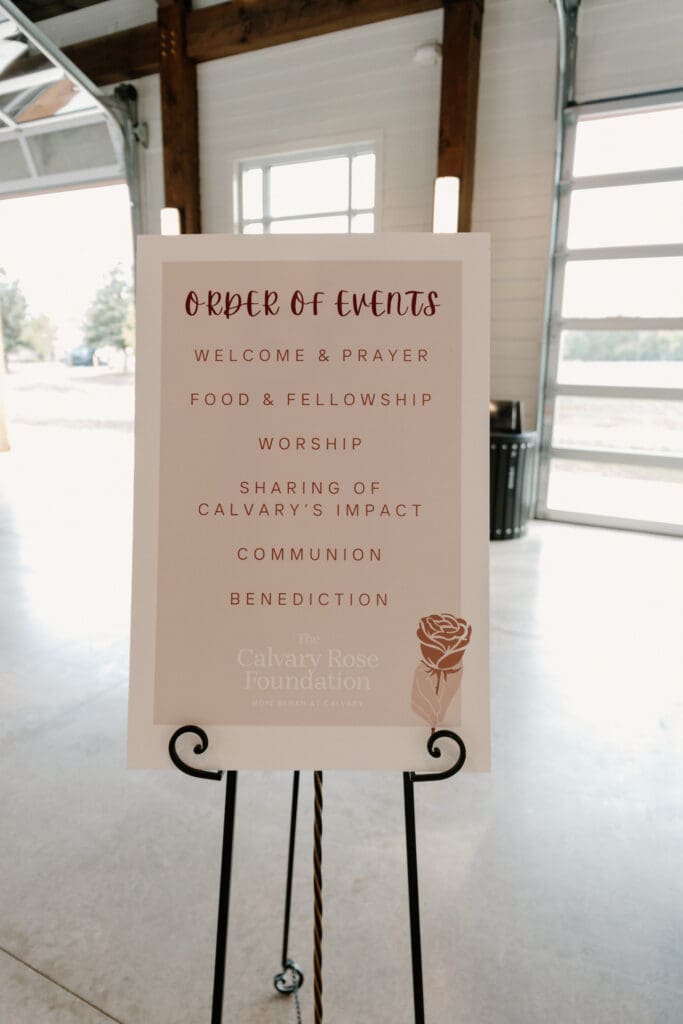 ORDER OF EVENTS
WELCOME & PRAYER
FOOD & FELLOWSHIP
WORSHIP
SHARING OF
CALVARY'S IMPACT
COMMUNION
BENEDICTION
The
Calvary Rose
Foundation
HOPE BEGAN AT CALVARY